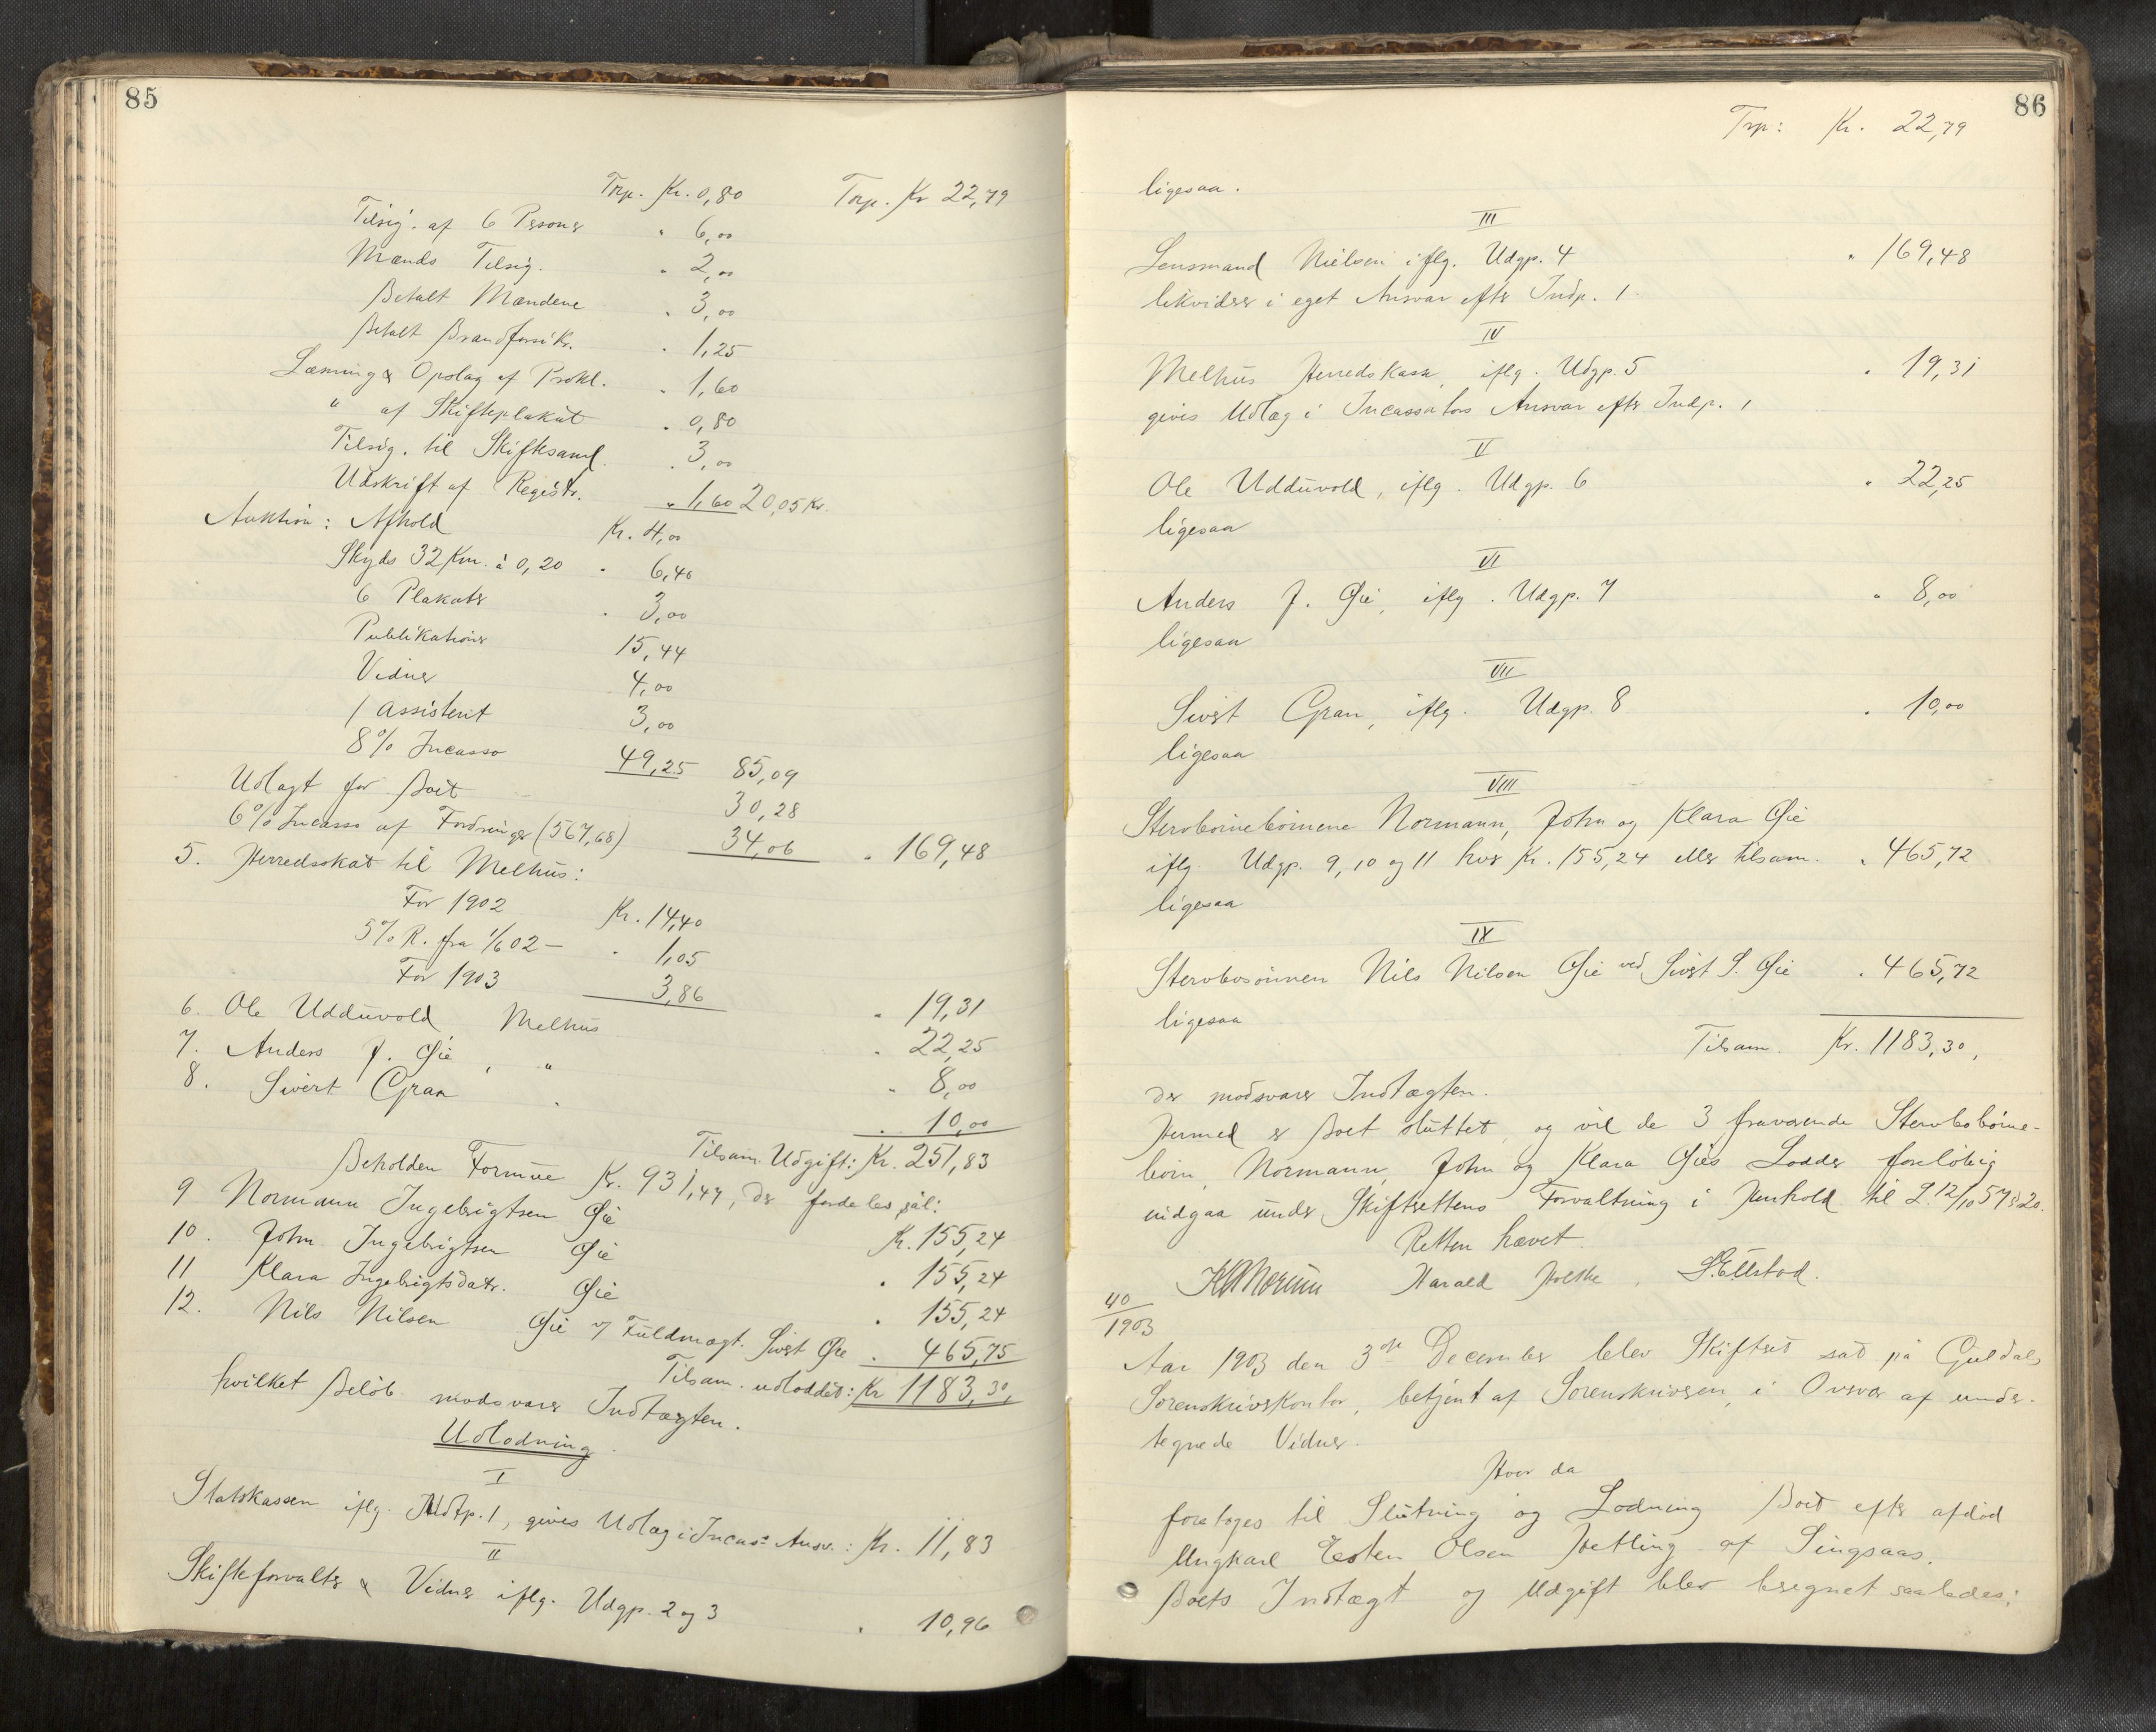 85
Trp. Kr. 0,80 Trp. Kr 22,79
Tilsig. af 6 Personer " 6,00
Mænds Tilsig. " 2,00
Betalt Mændene " 3,00
Betalt Brandforsikr. " 1,25
Læsning & Opslag af Prokl. " 1,60
" af Skifteplakat " 0,80
Tilsig. til Skiftesaml. " 3,00
Udskrift af Registr. " 1,60 20,05 Kr.
Auktion: Afhold Kr. 4,00
Skyds 32 Km. à 0,20 " 6,40
6 Plakater " 3,00
Publikationer 15,44
Vidner 4,00
1 Assistent 3,00
8% Incasso 49,25 85,09
Udlagt for Boet 30,28
6% Incasso af Fordringer (567,68) 34,06 " 169,48
5. Herredsskat til Melhus:
For 1902 Kr. 14,40
5% R. fra 1/6 02 — " 1,05
For 1903 3,86 " 19,31
6. Ole Udduvold, Melhus " 22,25
7. Anders J. Øie, " " 8,00
8. Sivert Gran " " 10,00
Tilsam. Udgift: Kr. 251,83
Beholden Formue Kr. 931,47, der fordeles sål:
9 Normann Ingebrigtsen Øie Kr. 155,24
10. John Ingebrigtsen Øie " 155,24
11 Klara Ingebrigtsdatr. Øie " 155,24
12. Nils Nilsen Øie v/ Fuldmægt. Sivert Øie " 465,75
Tilsam. udloddet: Kr 1183,30,
hvilket Beløb modsvarer Indtægten.
Udlodning.
I
Statskassen iflg. Udgp. 1, gives Udlæg i Incas: Ansv.: Kr. 11,83
II
Skifteforvalter & Vidner iflg. Udgp. 2 og 3 " 10,96
86
Trp: Kr. 22,79
ligesaa.
III
Lensmand Nielsen iflg. Udgp. 4 " 169,48
likviderer i eget Ansvar efter Indp. 1.
IV
Melhus Herredskasse, iflg. Udgp. 5 " 19,31
gives Udlæg i Incassators Ansvar efter Indp. 1
V
Ole Udduvold, iflg. Udgp. 6 " 22,25
ligesaa
VI
Anders J. Øie, iflg. Udgp. 7 " 8,00
ligesaa
VII
Sivert Gran, iflg. Udgp. 8 " 10,00
ligesaa
VIII
Stervbørnebørnene Normann, John og Klara Øie
iflg. Udgp. 9, 10 og 11 hver Kr. 155,24 eller tilsam. " 465,72
ligesaa
IX
Stervbosønnen Nils Nilsen Øie ved Sivert S. Øie " 465,72
ligesaa
Tilsam. Kr. 1183,30,
der modsvarer Indtægten.
Hermed er Boet sluttet, og vil de 3 fraværende Stervbobørne-
børn, Normann, John og Klara Øies Lodder foreløbig
indgaa under Skifterettens Forvaltning i Henhold til L. 12/10 57 § 20.
Retten hævet.
Harald S. Ellstad.
40/1903
Aar 1903 den 3die December blev Skifteret sat på Guldals
Sorenskriverkontor, betjent af Sorenskriveren, i Overvær af under-
tegnede Vidner.
Hvor da
foretoges til Slutning og Lodning Boet efter afdød
Ungkarl Esten Olsen Hetling af Singsaas.
Boets Indtægt og Udgift blev beregnet saaledes: